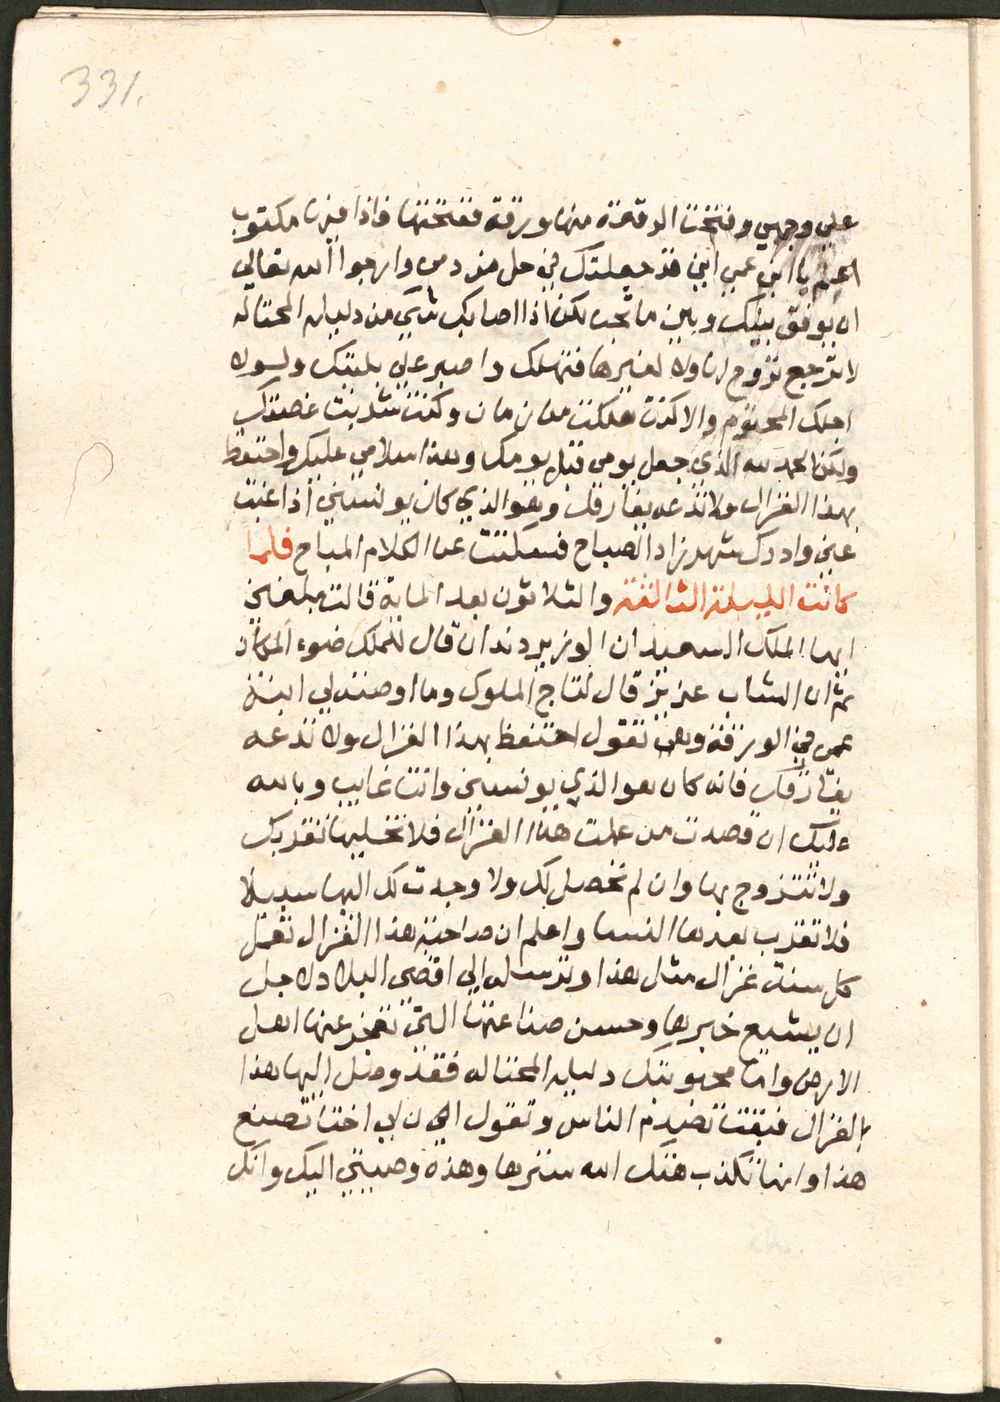 331.
علي وجهي وفتحت الرقمة منها ورقة ففتحتها فاذا فيها مكتوب
اعلم يا ابن عمي اني قد جعلتك في حل من دمي وارجوا الله تعالي
ان يوفق بينك وبين ما تحب لكن اذا اصابك شي من دليله المحتاله
لا ترجع تزوح لها ولا لغيرها فتهلك واصبر علي بليتك ولولا
اجلك المحتوم والا كنت هلكت من زمان وكنت شربت غصتك
ولكن الحمد لله الذي جعل يومي قبل يومك وهذا سلامي عليك واحتفظ
بهذا الغزال ولا تدعه يفارقك وهو الذي كان يونسني اذا غبت
عني وادرك شهرزاد الصباح فسكتت عن الكلام المباح فلما
كانت الليلة الثالثة والثلاثون بعد الماية قالت بلغني
ايها الملك السعيد ان الوزير دندان قال للملك ضوء المكان
ثم ان الشاب عزيز قال لتاج الملوك وما اوصتني ابنة
عمي في الورقة وهي تقول احتفظ بهذا الغزال ولا تدعه
يفارقك فانه كان هو الذي يونسني وانت غايب وبالله
عليك ان قصدت من عملت هذا الغزال فلا تخليها تقربك
ولا تتزوج بها وان لم تحصل لك ولا وجدت لك اليها سبيلا
فلا تقرب بعدها النسا واعلم ان صاحبة هذا الغزال تعمل
كل سنة غزال مثل هذا وترسله الي اقصى البلاد لاجل
ان يشيع خبرها وحسن صناعتها التي تعجز عنها اهل
الارض واما محبوبتك دليله المحتاله فقد وصل اليها هذا
الغزال فبقت تصدم الناس وتقول ان لي اختا تصنع
هذا وانها تكذب هتك الله سترها وهذه وصيتي اليك وانك